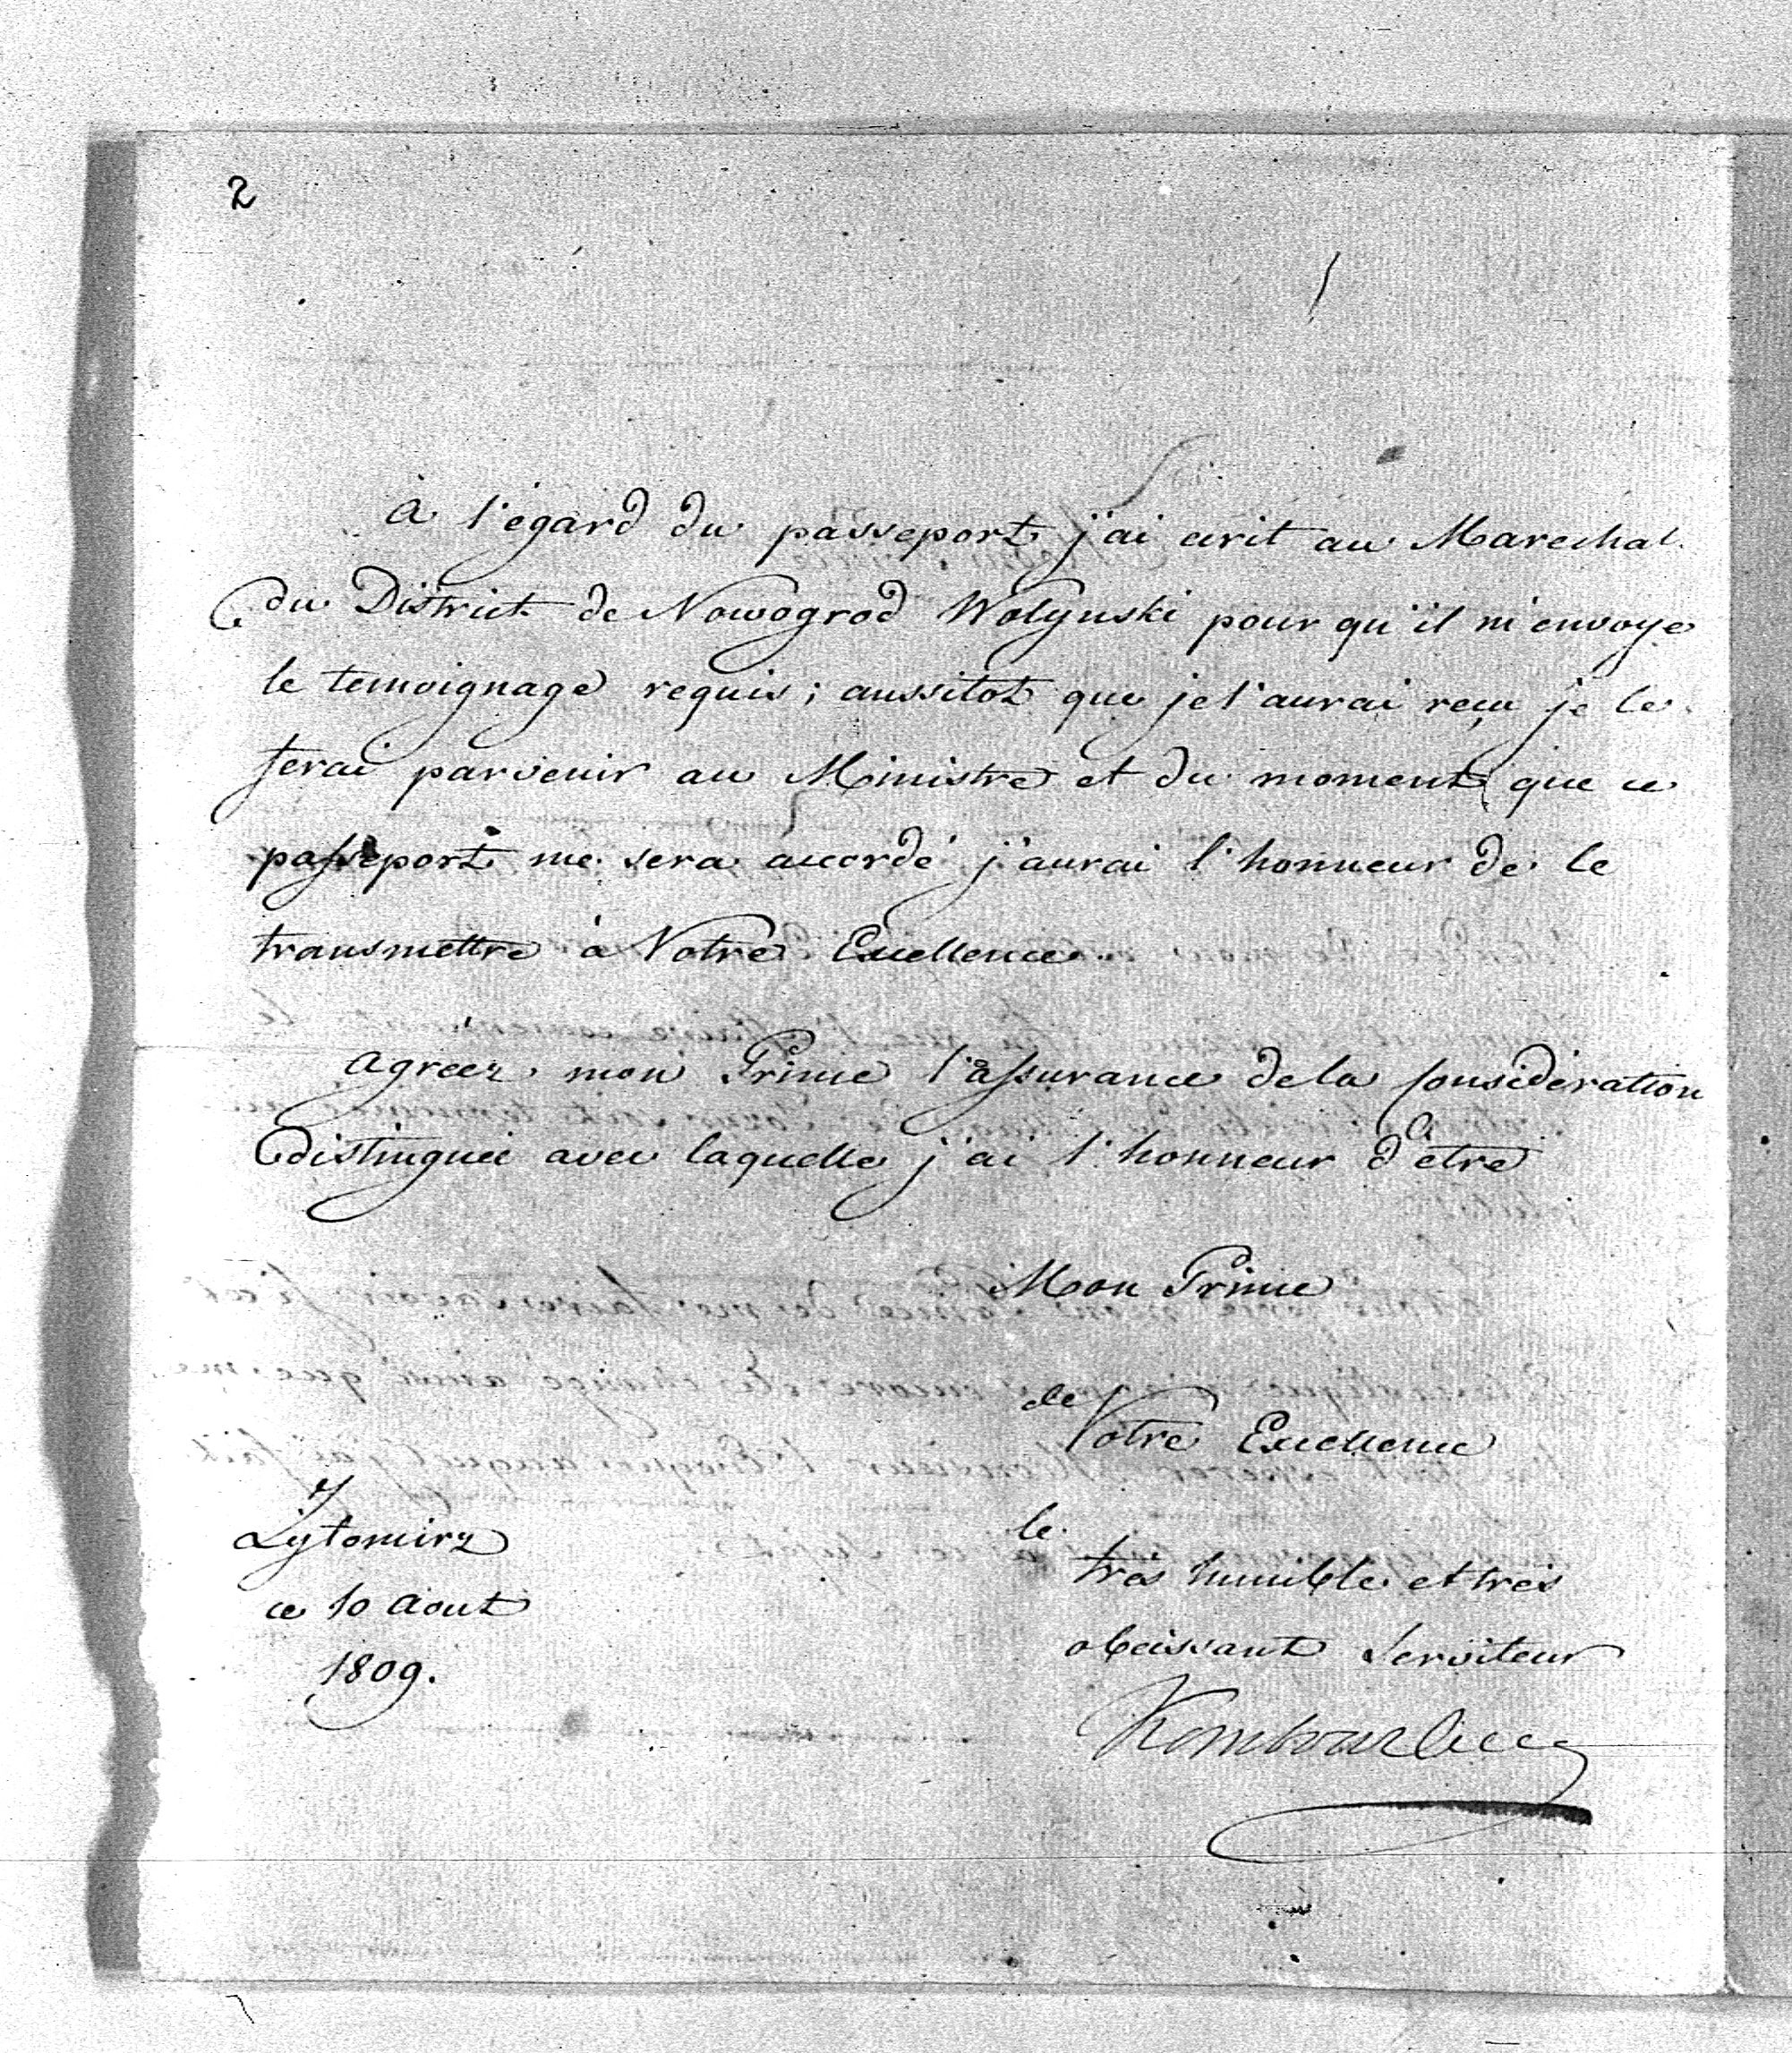 2
à l'égard du passeport j'ai ecrit au Marechal
du District de Nowogrod Wolynski pour qu'il m'envoye
le temoignage requis; aussitot que je l'aurai reçu je le
ferai parvenir au Ministre et du moment que ce
passeport me sera accordé j'aurai l'honneur de le
transmettre à Votre Excellence.
agréez mon Prince l'assurance de la consideration
distinguée avec laquelle j'ai l'honneur d'être
Mon Prince
de
Votre Excellence
Zytomirz
ce 10 Aout
1809.
le
très humble et très
obeissant Serviteur